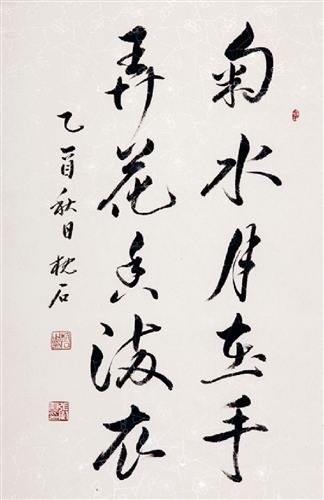 掬水月在手
弄花香满衣
乙酉秋日 枕石